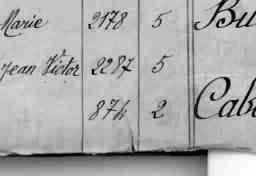 Marie 2178 5 Bu
Jean Victor 2287 5
874 2 Cab